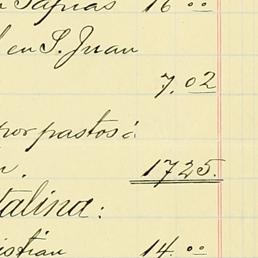 Sapias 16 00
en S. Juan
7.02
por pastos á
n. 1725.
talina:
istian 14.00